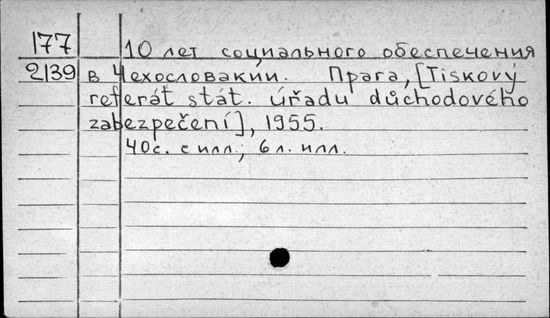 177 10 лет социального обеспечения
2139 в Чехословакии. Прага, [Tiskový
referát stát. úřadu důchodového
zabezpečení], 1955.
40с. с илл.; 6 л. илл.